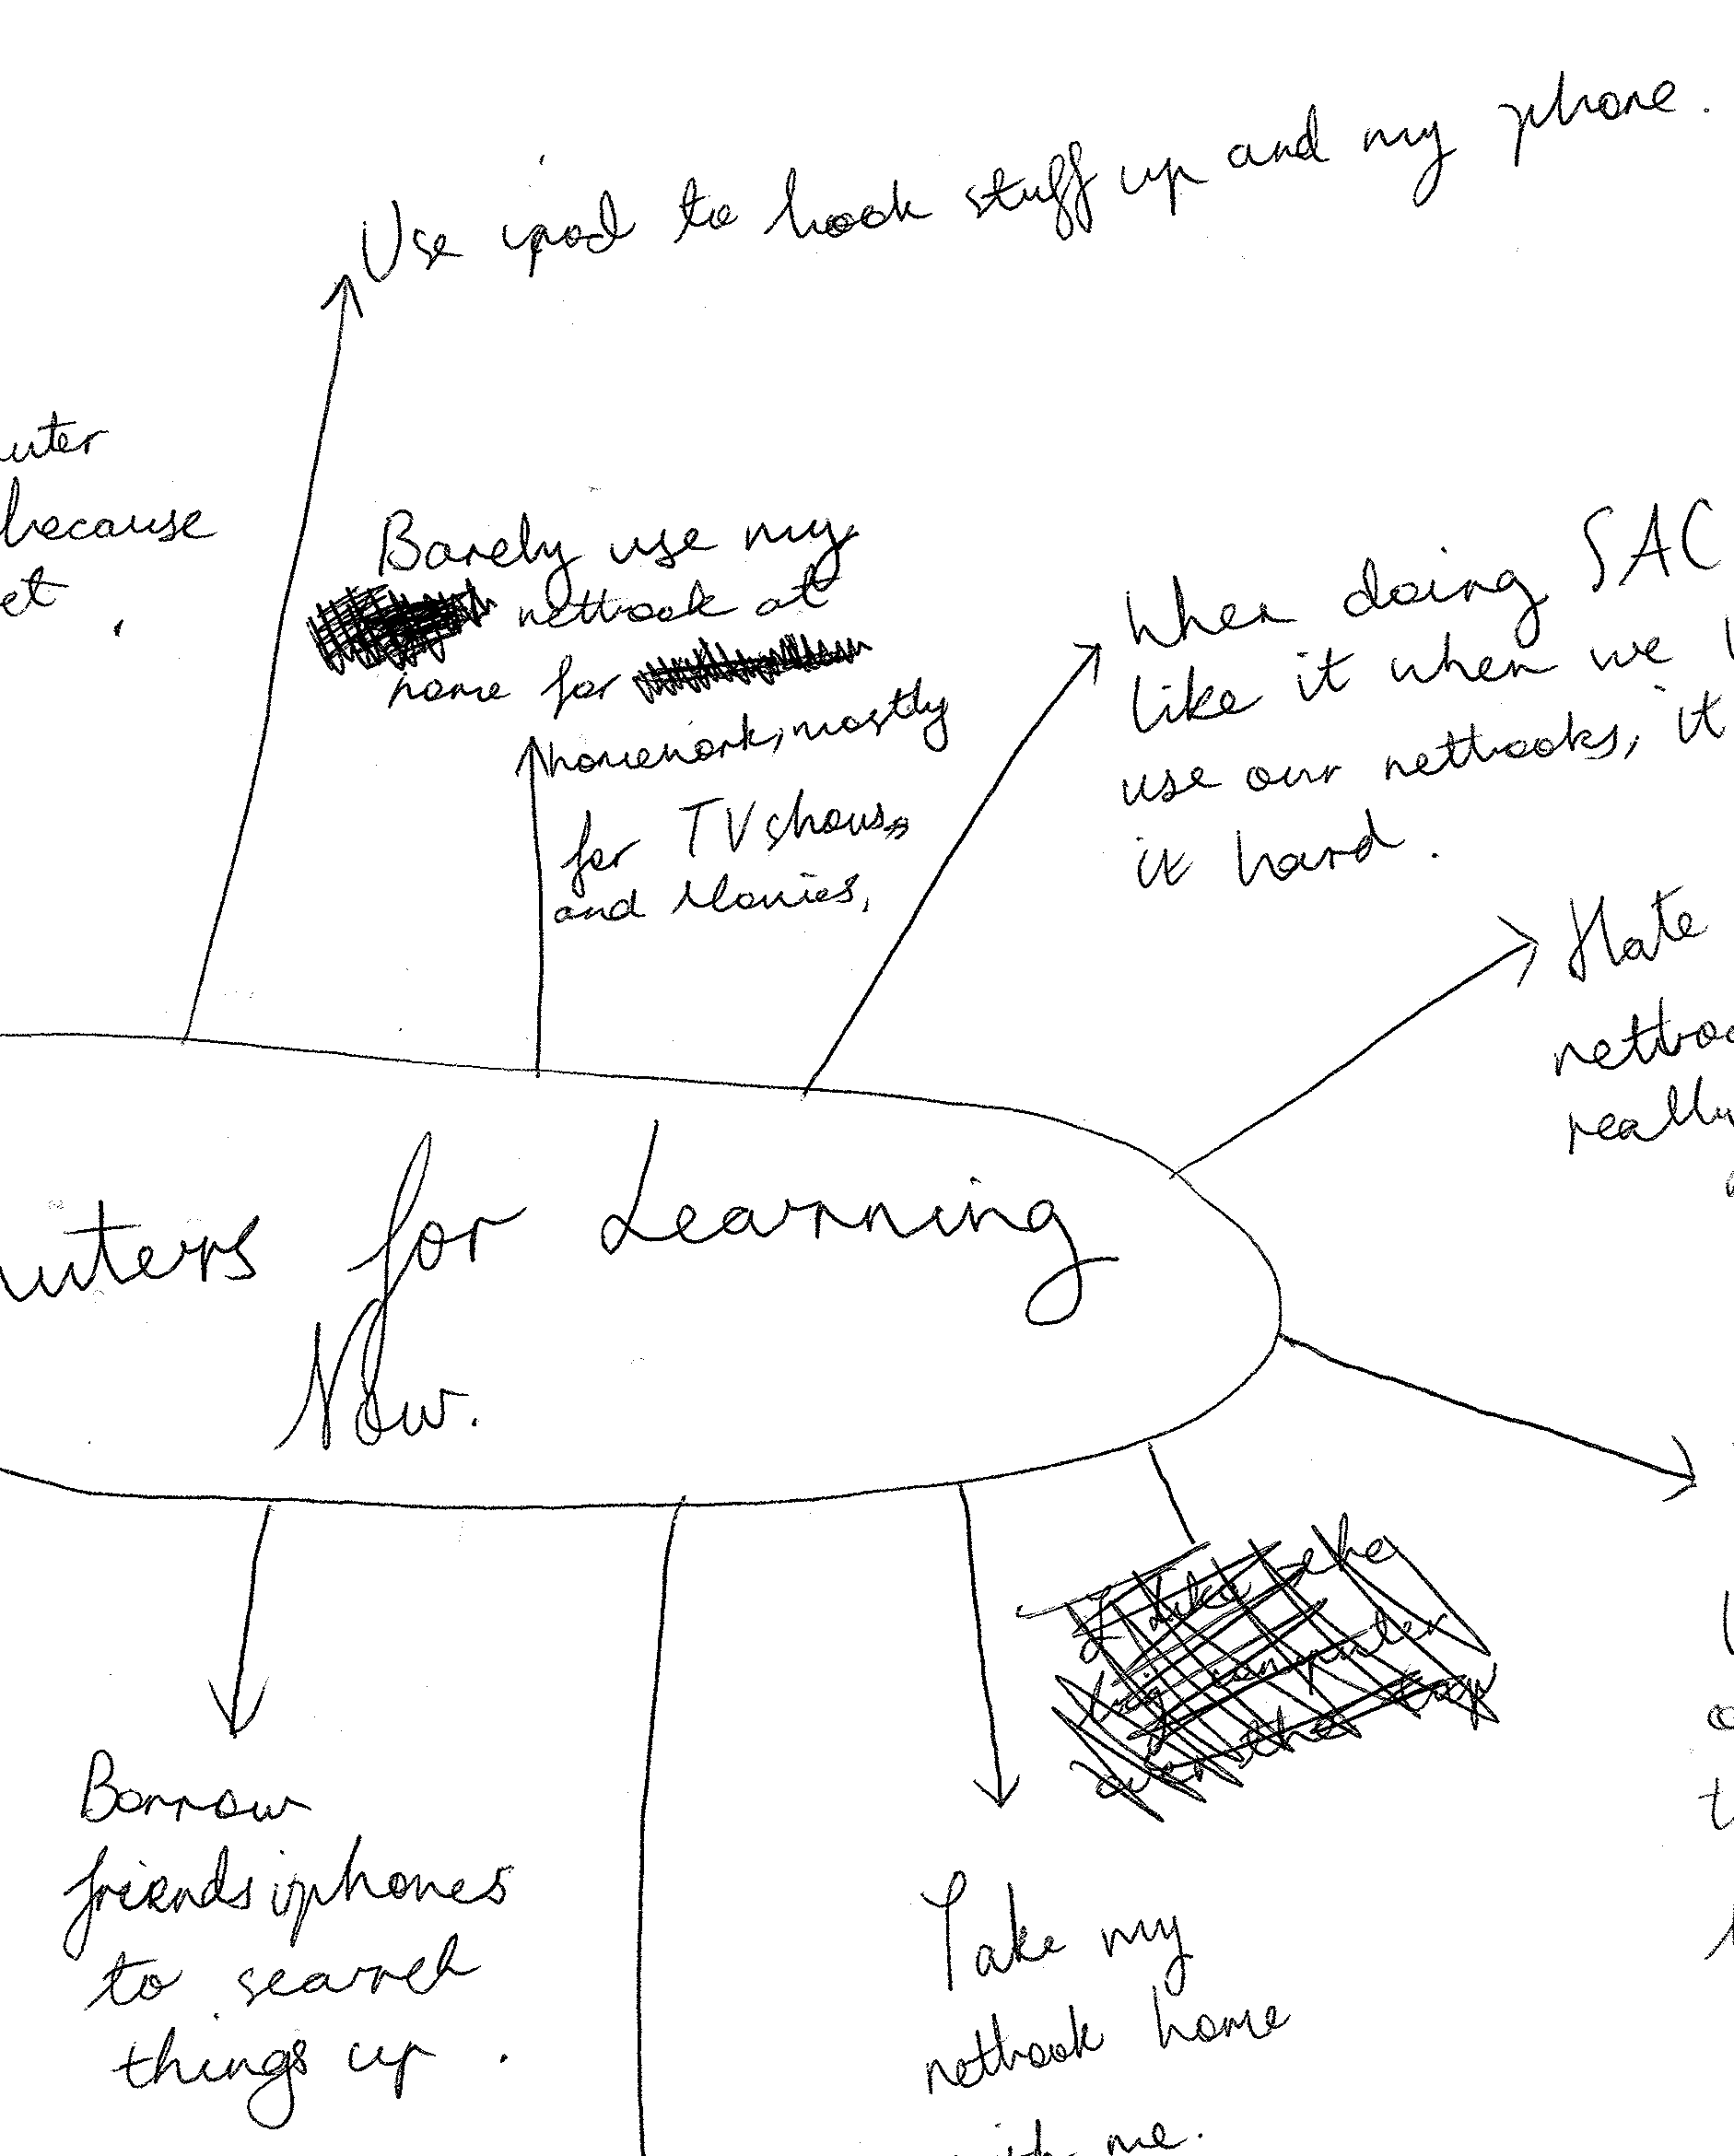 Use ipod to hook stuff up and my phone.
because
Barely use my
netbook at
home for
homework, mostly
for TV shows
and Movies,
When doing SAC
like it when we
use our netbooks, it
it hard.
Hate
really
for Learning
Now.
I like the
big computer
Borrow
friends iphones
to search
things up.
Take my
netbook home
me.